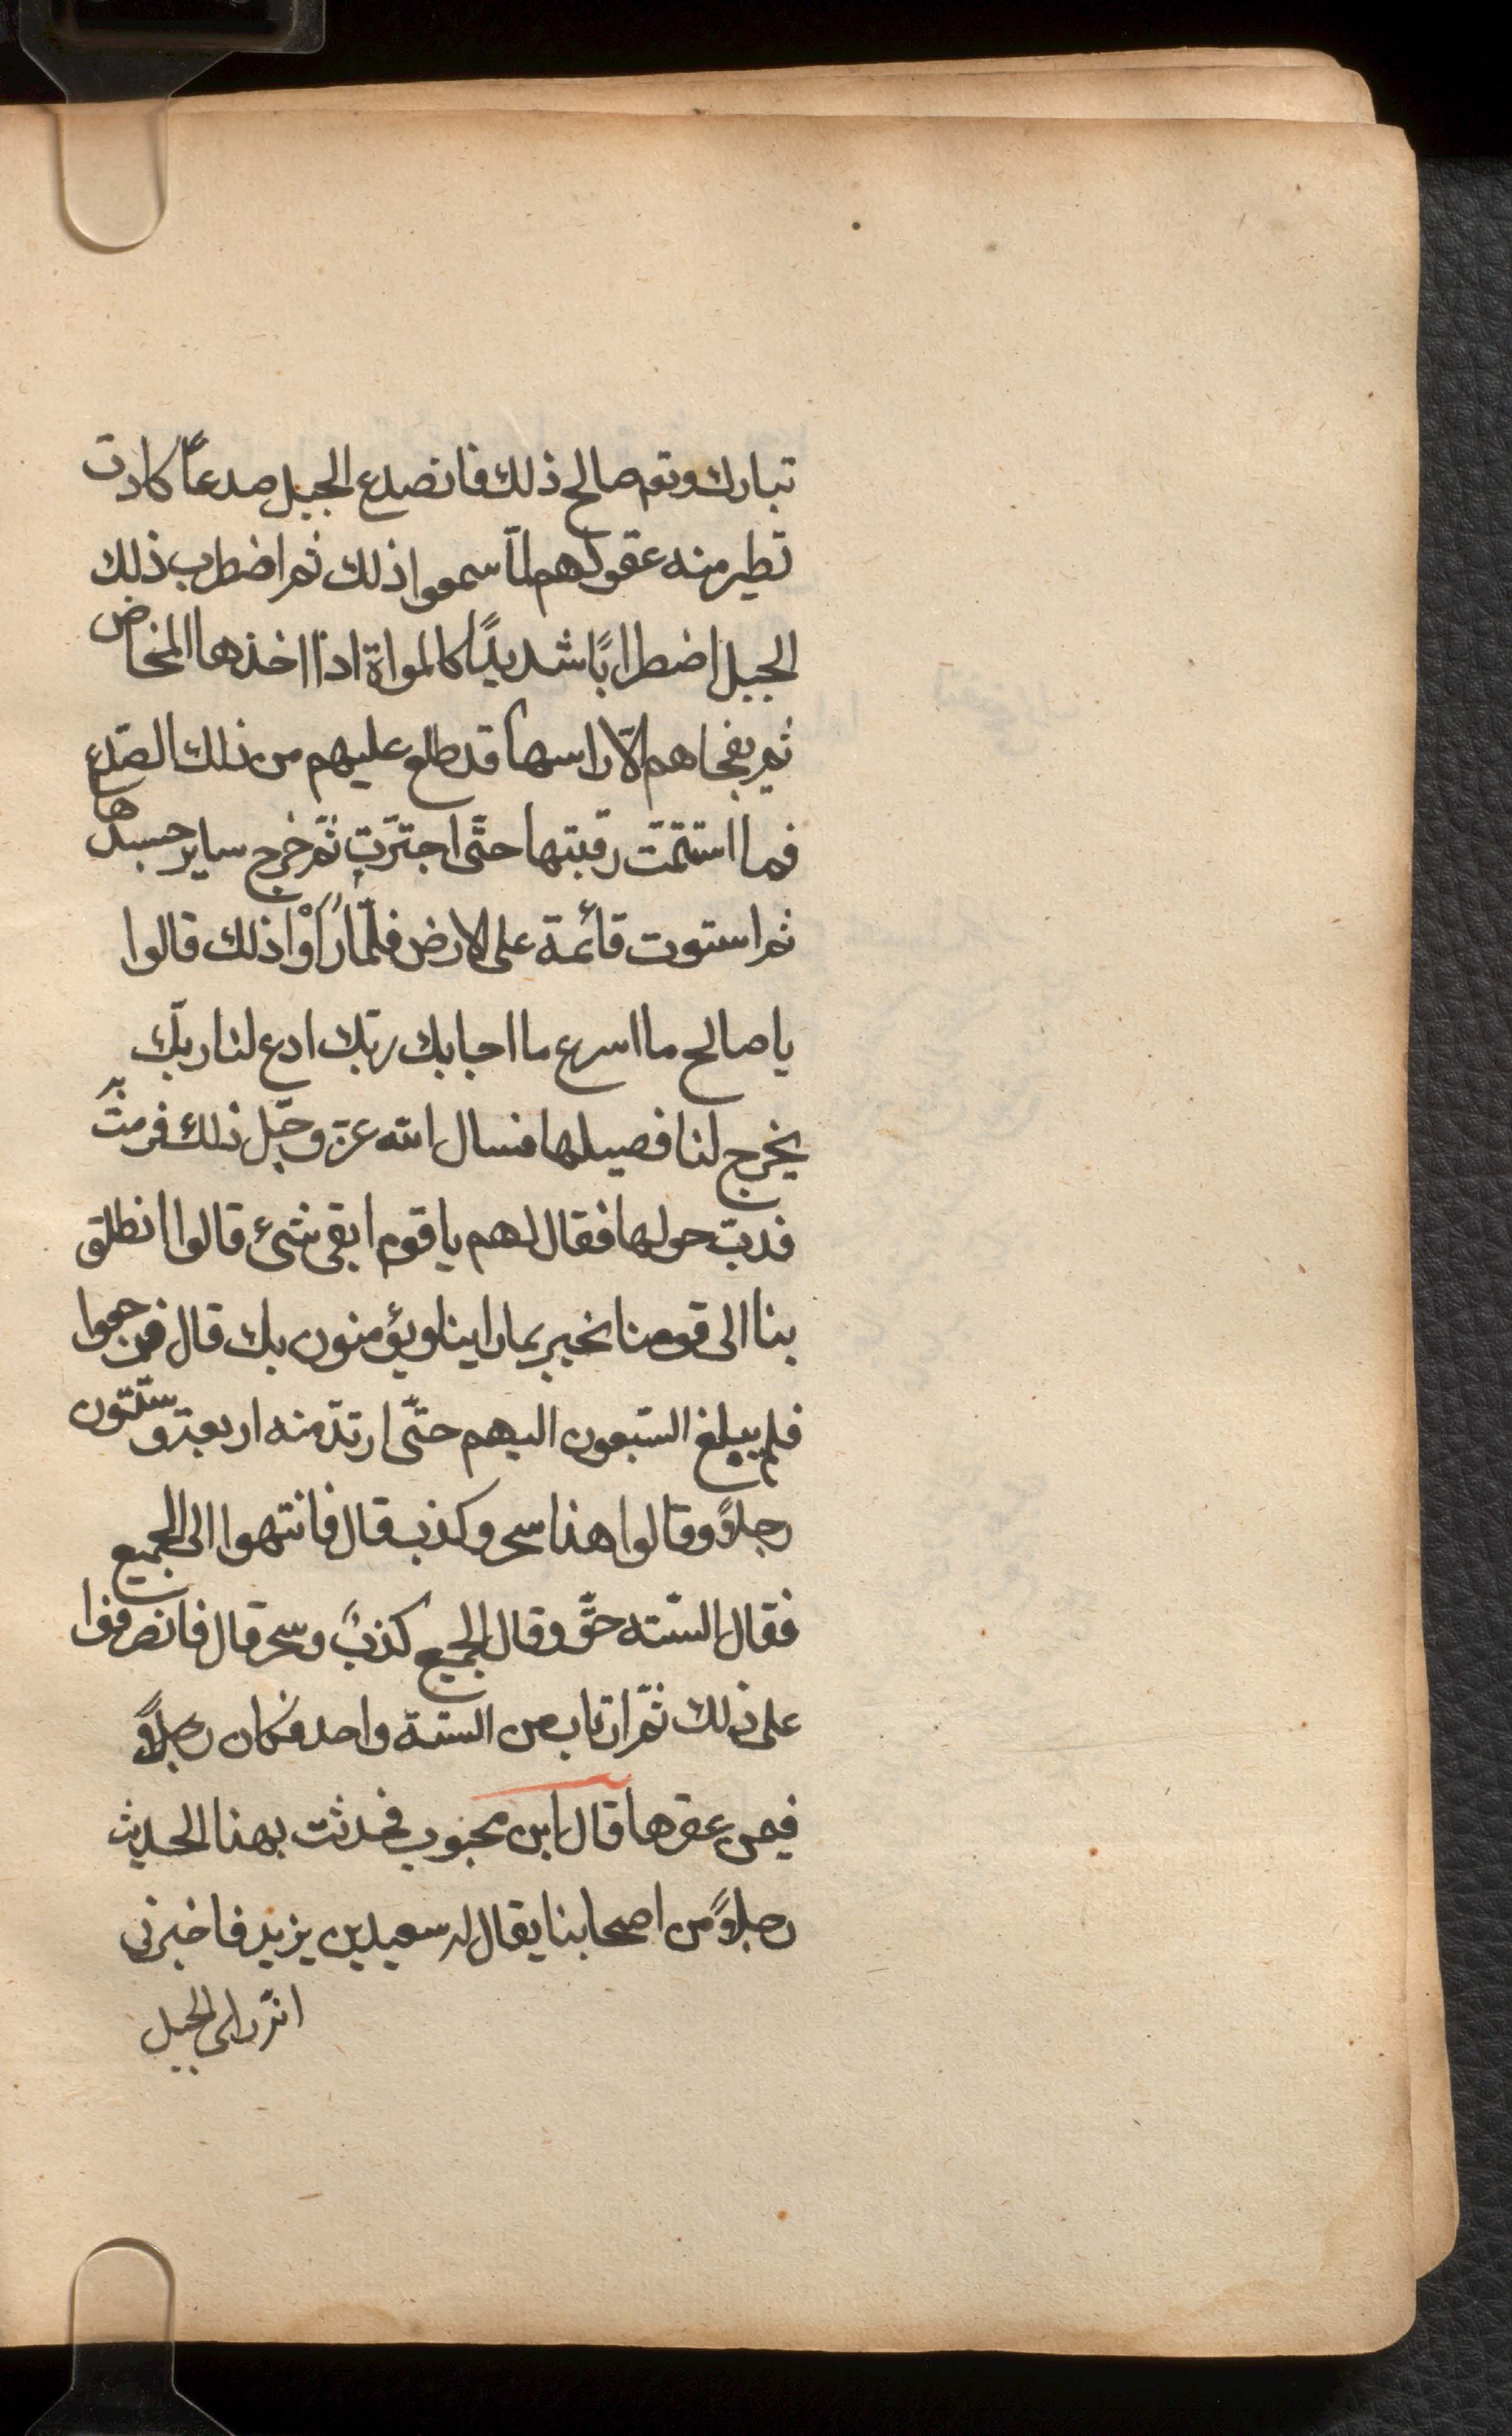 تبارك وتع صالح ذلك فانصدع الجبل صدعاً كادت
تطير منه عقولهم لمّا سمعوا ذلك ثم اضطرب ذلك
الجبل اضطراباً شديداً كالمراة اذا اخذها المخاض
ثم يفجاهم الّا راسها قد طلع عليهم من ذلك الصّدع
فما استتمّت رقبتها حتّى اجترّت ثمّ خرج ساير جسدها
ثم استوت قائمة على الارض فلمّا رَاَوْا ذلك قالوا
يا صالح ما اسرع ما اجابك ربّك ادع لنا ربّك
يخرج لنا فصيلها فسال الله عزّ وجلّ ذلك فرمت به
فدبّ حولها فقال لهم يا قوم ابقى شئ قالوا انطلق
بنا الى قومنا نخبر بما راينا ويؤمنون بك قال فرجعوا
فلم يبلغ السّبعون اليهم حتّى ارتدّ منه اربعة وستّون
رجلاً وقالوا هذا سحر وكذب قال فانتهوا الى الجميع
فقال الستّه حقّ وقال الجميع كذبٌ وسحر قال فانصرفوا
على ذلك ثمّ ارتاب من الستة واحد فكان رجلاً
فيمن عقرها قال ابن محبوب فحدثت بهذا الحديث
رجلاً من اصحابنا يقال له سعيد بن يزيد فاخبرنى
انّه راى الجبل